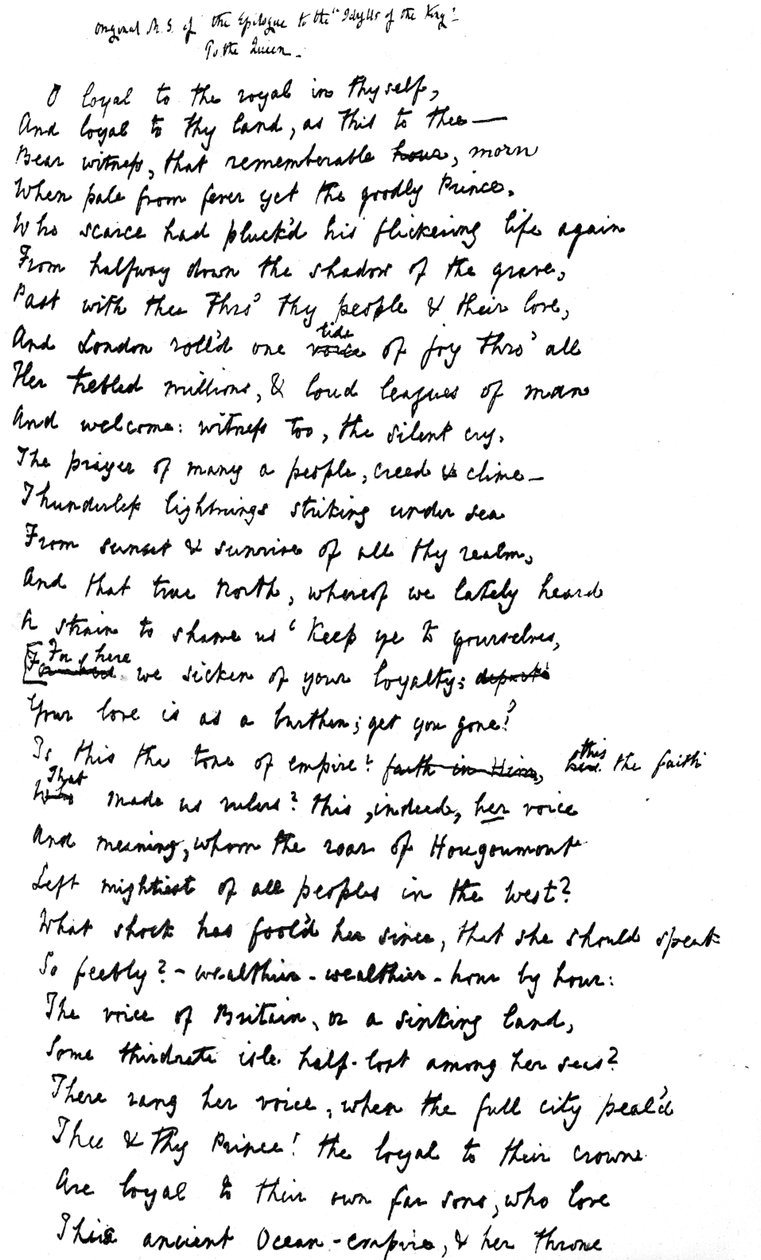 Original M.S. of the Epilogue to the "Idylls of the King".
To the Queen.
O loyal to the royal in thyself,
And loyal to thy land, as this to thee—
Bear witness, that rememberable hour, morn
When pale from fever yet the goodly Prince,
Who scarce had pluck'd his flickering life again
From halfway down the shadow of the grave,
Past with thee thro' thy people & their love,
tide
And London roll'd one voice of joy thro' all
Her trebled millions, & loud leagues of man
And welcome: witness too, the silent cry,
The prayer of many a people, creed & clime—
Thunderless lightnings striking under sea
From sunset & sunrise of all thy realm,
And that true North, whereof we lately heard
A strain to shame us 'Keep ye to yourselves,
For here
we sicken of your loyalty;
Your love is as a burthen; get you gone!'
this
Is this the tone of empire? faith in Him, here the faith
That
Who made us rulers? this, indeed, her voice
And meaning, whom the roar of Hougoumont
Left mightiest of all peoples in the West?
What shock has fool'd her since, that she should speak
So feebly? - wealthier - wealthier - hour by hour:
The voice of Britain, or a sinking land,
Some thirdrate isle half-lost among her seas?
There rang her voice, when the full city peal'd
Thee & thy Prince! the loyal to their crown
Are loyal to their own far sons, who love
This ancient Ocean-empire, & her throne